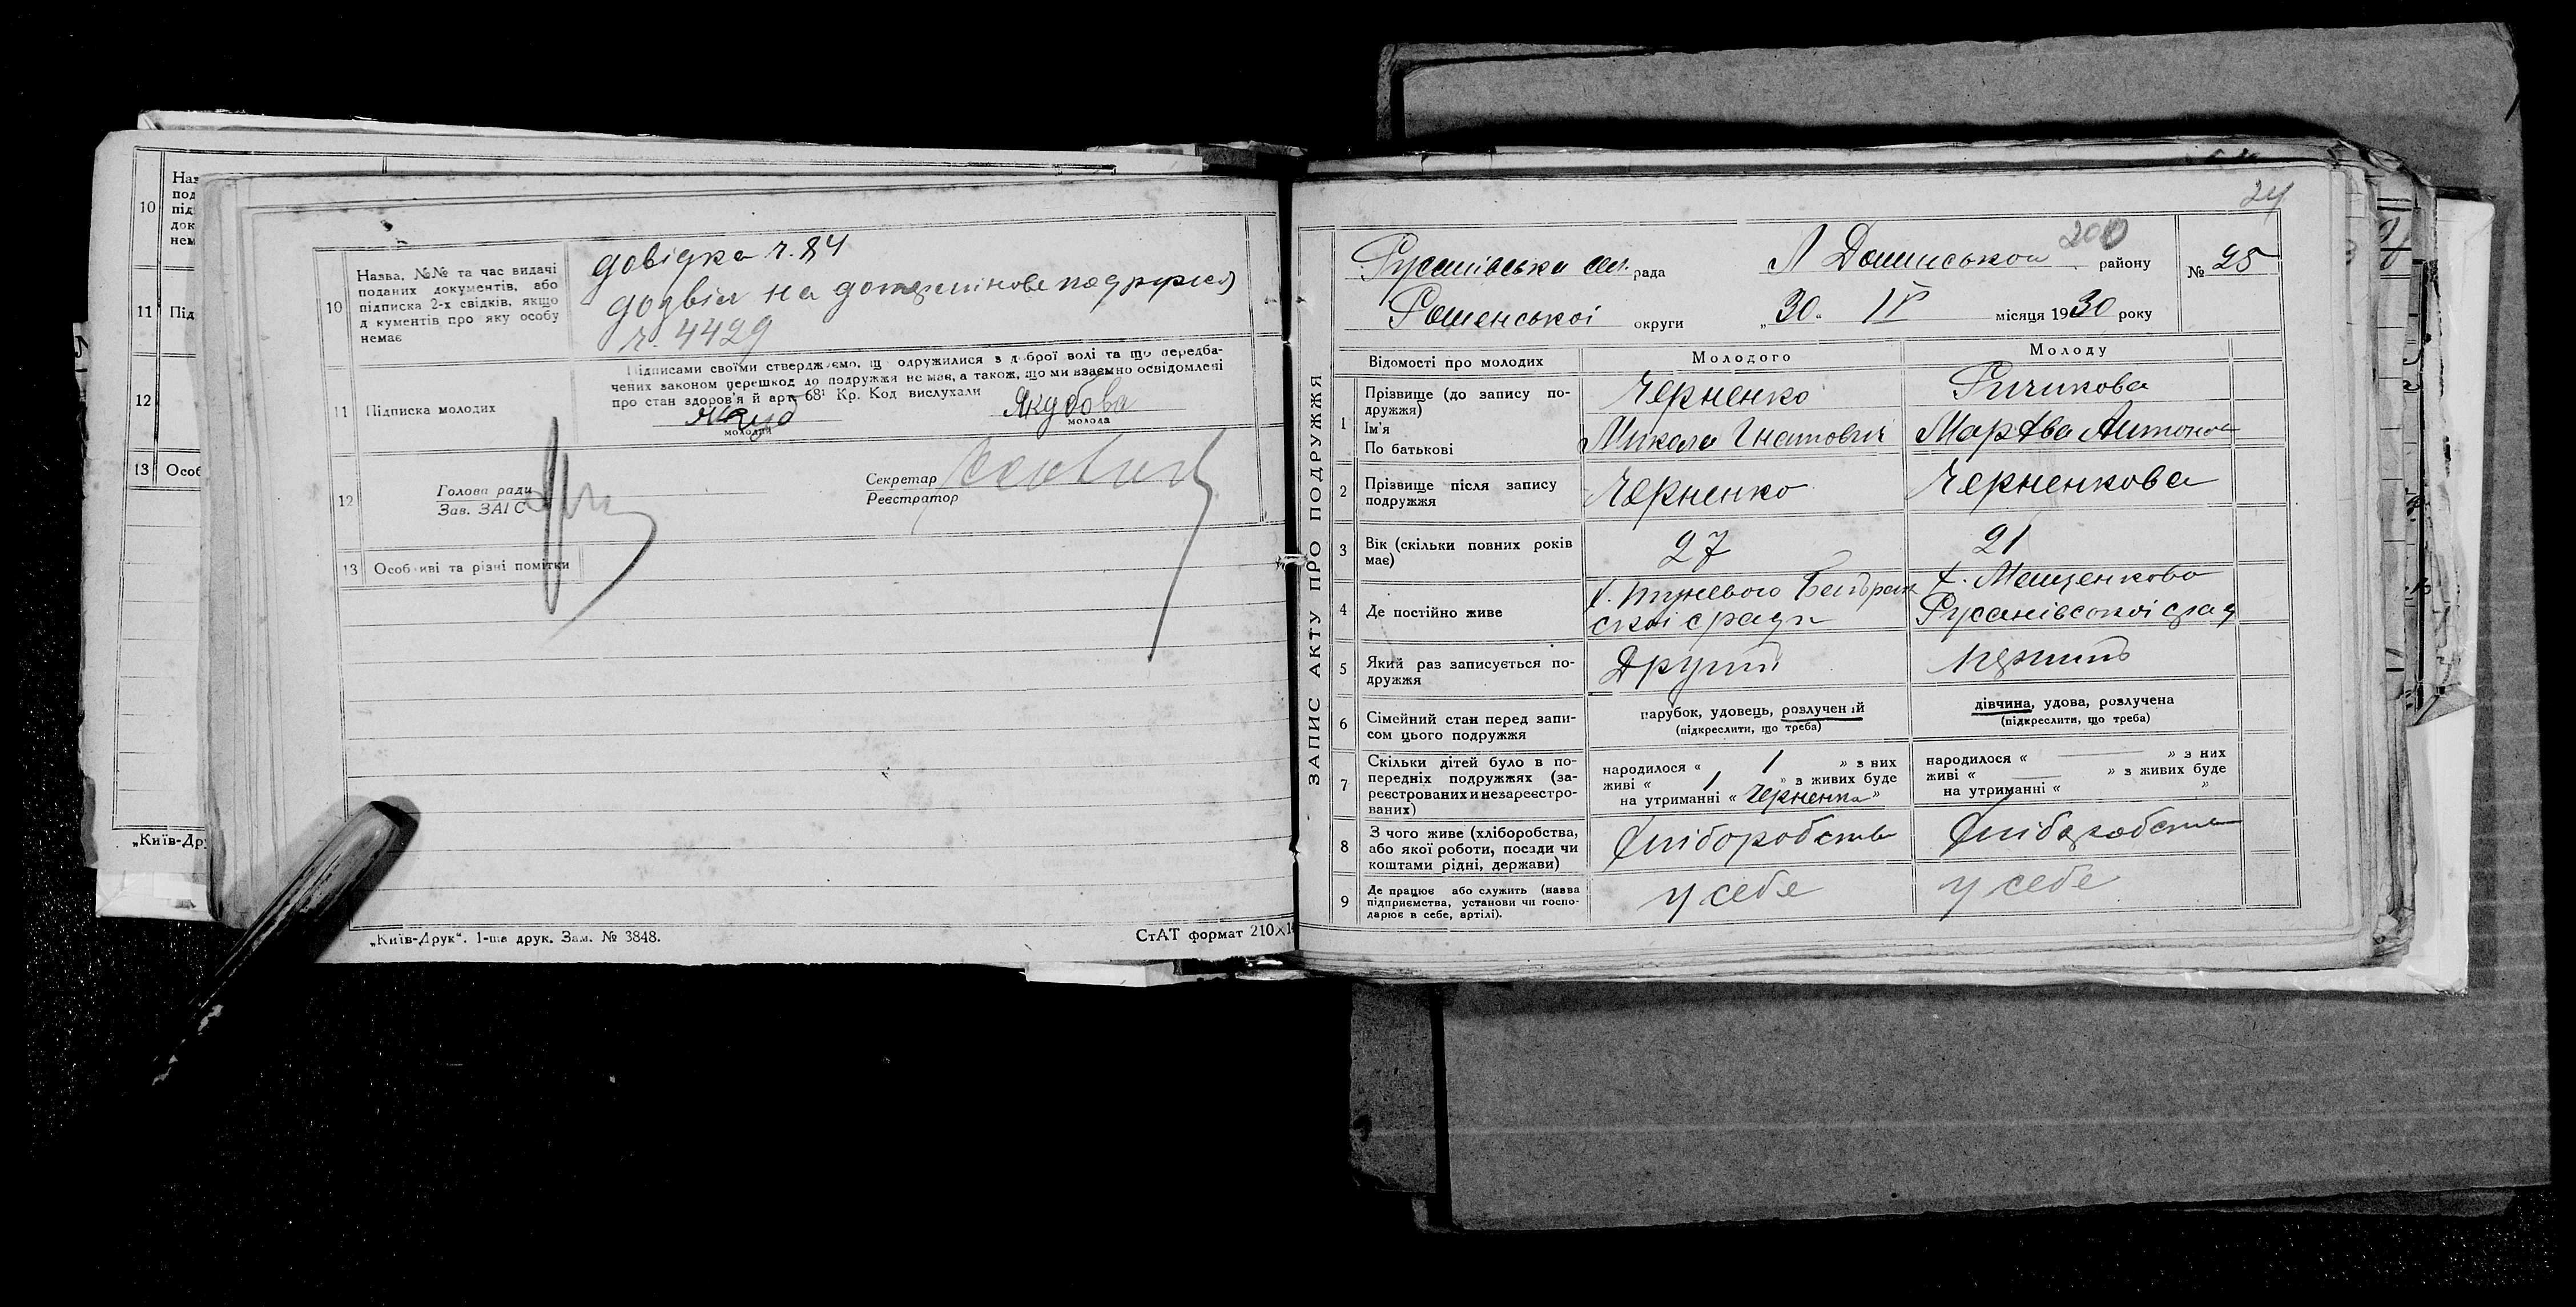 10
11 Під
12
13 Особ
„Київ-Дру
10 Назва, №№ та час видачі поданих документів, або підписка 2-х свідків, якщо д кументів про яку особу немає
довідка ч. 84
дозвіл на дотермінове подружжя
ч. 4429
11 Підписка молодих
Підписами своїми стверджуємо, що одружилися з доброї волі та що передба-
чених законом перешкод до подружжя не має, а також, що ми взаємно освідомлені
про стан здоров'я й арт. 68¹ Кр. Код вислухали
Якуб
Якубова
молодий
молода
12
Голова ради
Зав. ЗАГС
Секретар
Реєстратор
13 Особливі та різні помітки
„Київ-Друк“. 1-ша друк. Зам. № 3848.
СтАТ формат 210×1
24
200
ЗАПИС АКТУ ПРО ПОДРУЖЖЯ
Русанівська сіл. рада
Л Долинської району
№ 25
Роменської округи
„30“ IV місяця 1930 року
Відомості про молодих
Молодого
Молоду
1
Прізвище (до запису по-
дружжя)
Ім'я
По батькові
Черненко
Микола Гнатович
Ричикова
Марфа Антонов
2
Прізвище після запису
подружжя
Черненко
Черненкова
3
Вік (скільки повних років
має)
27
21
4
Де постійно живе
ської сради
х. Мащенково
Русанівської срад
5
Який раз записується по-
дружжя
Другий
перший
6
Сімейний стан перед запи-
сом цього подружжя
парубок, удовець, розлучений
(підкреслити, що треба)
дівчина, удова, розлучена
(підкреслити, що треба)
7
Скільки дітей було в по-
передніх подружжях (за-
реєстрованих и незареєстро-
ваних)
народилося « 1 » з них
живі « 1 » з живих буде
на утриманні « Черненка »
народилося « — » з них
живі « — » з живих буде
на утриманні « »
8
З чого живе (хліборобства,
або якої роботи, посади чи
коштами рідні, держави)
Хліборобства
Хліборобства
9
Де працює або служить (назва
підприємства, установи чи госпо-
дарює в себе, артілі).
у себе
у себе